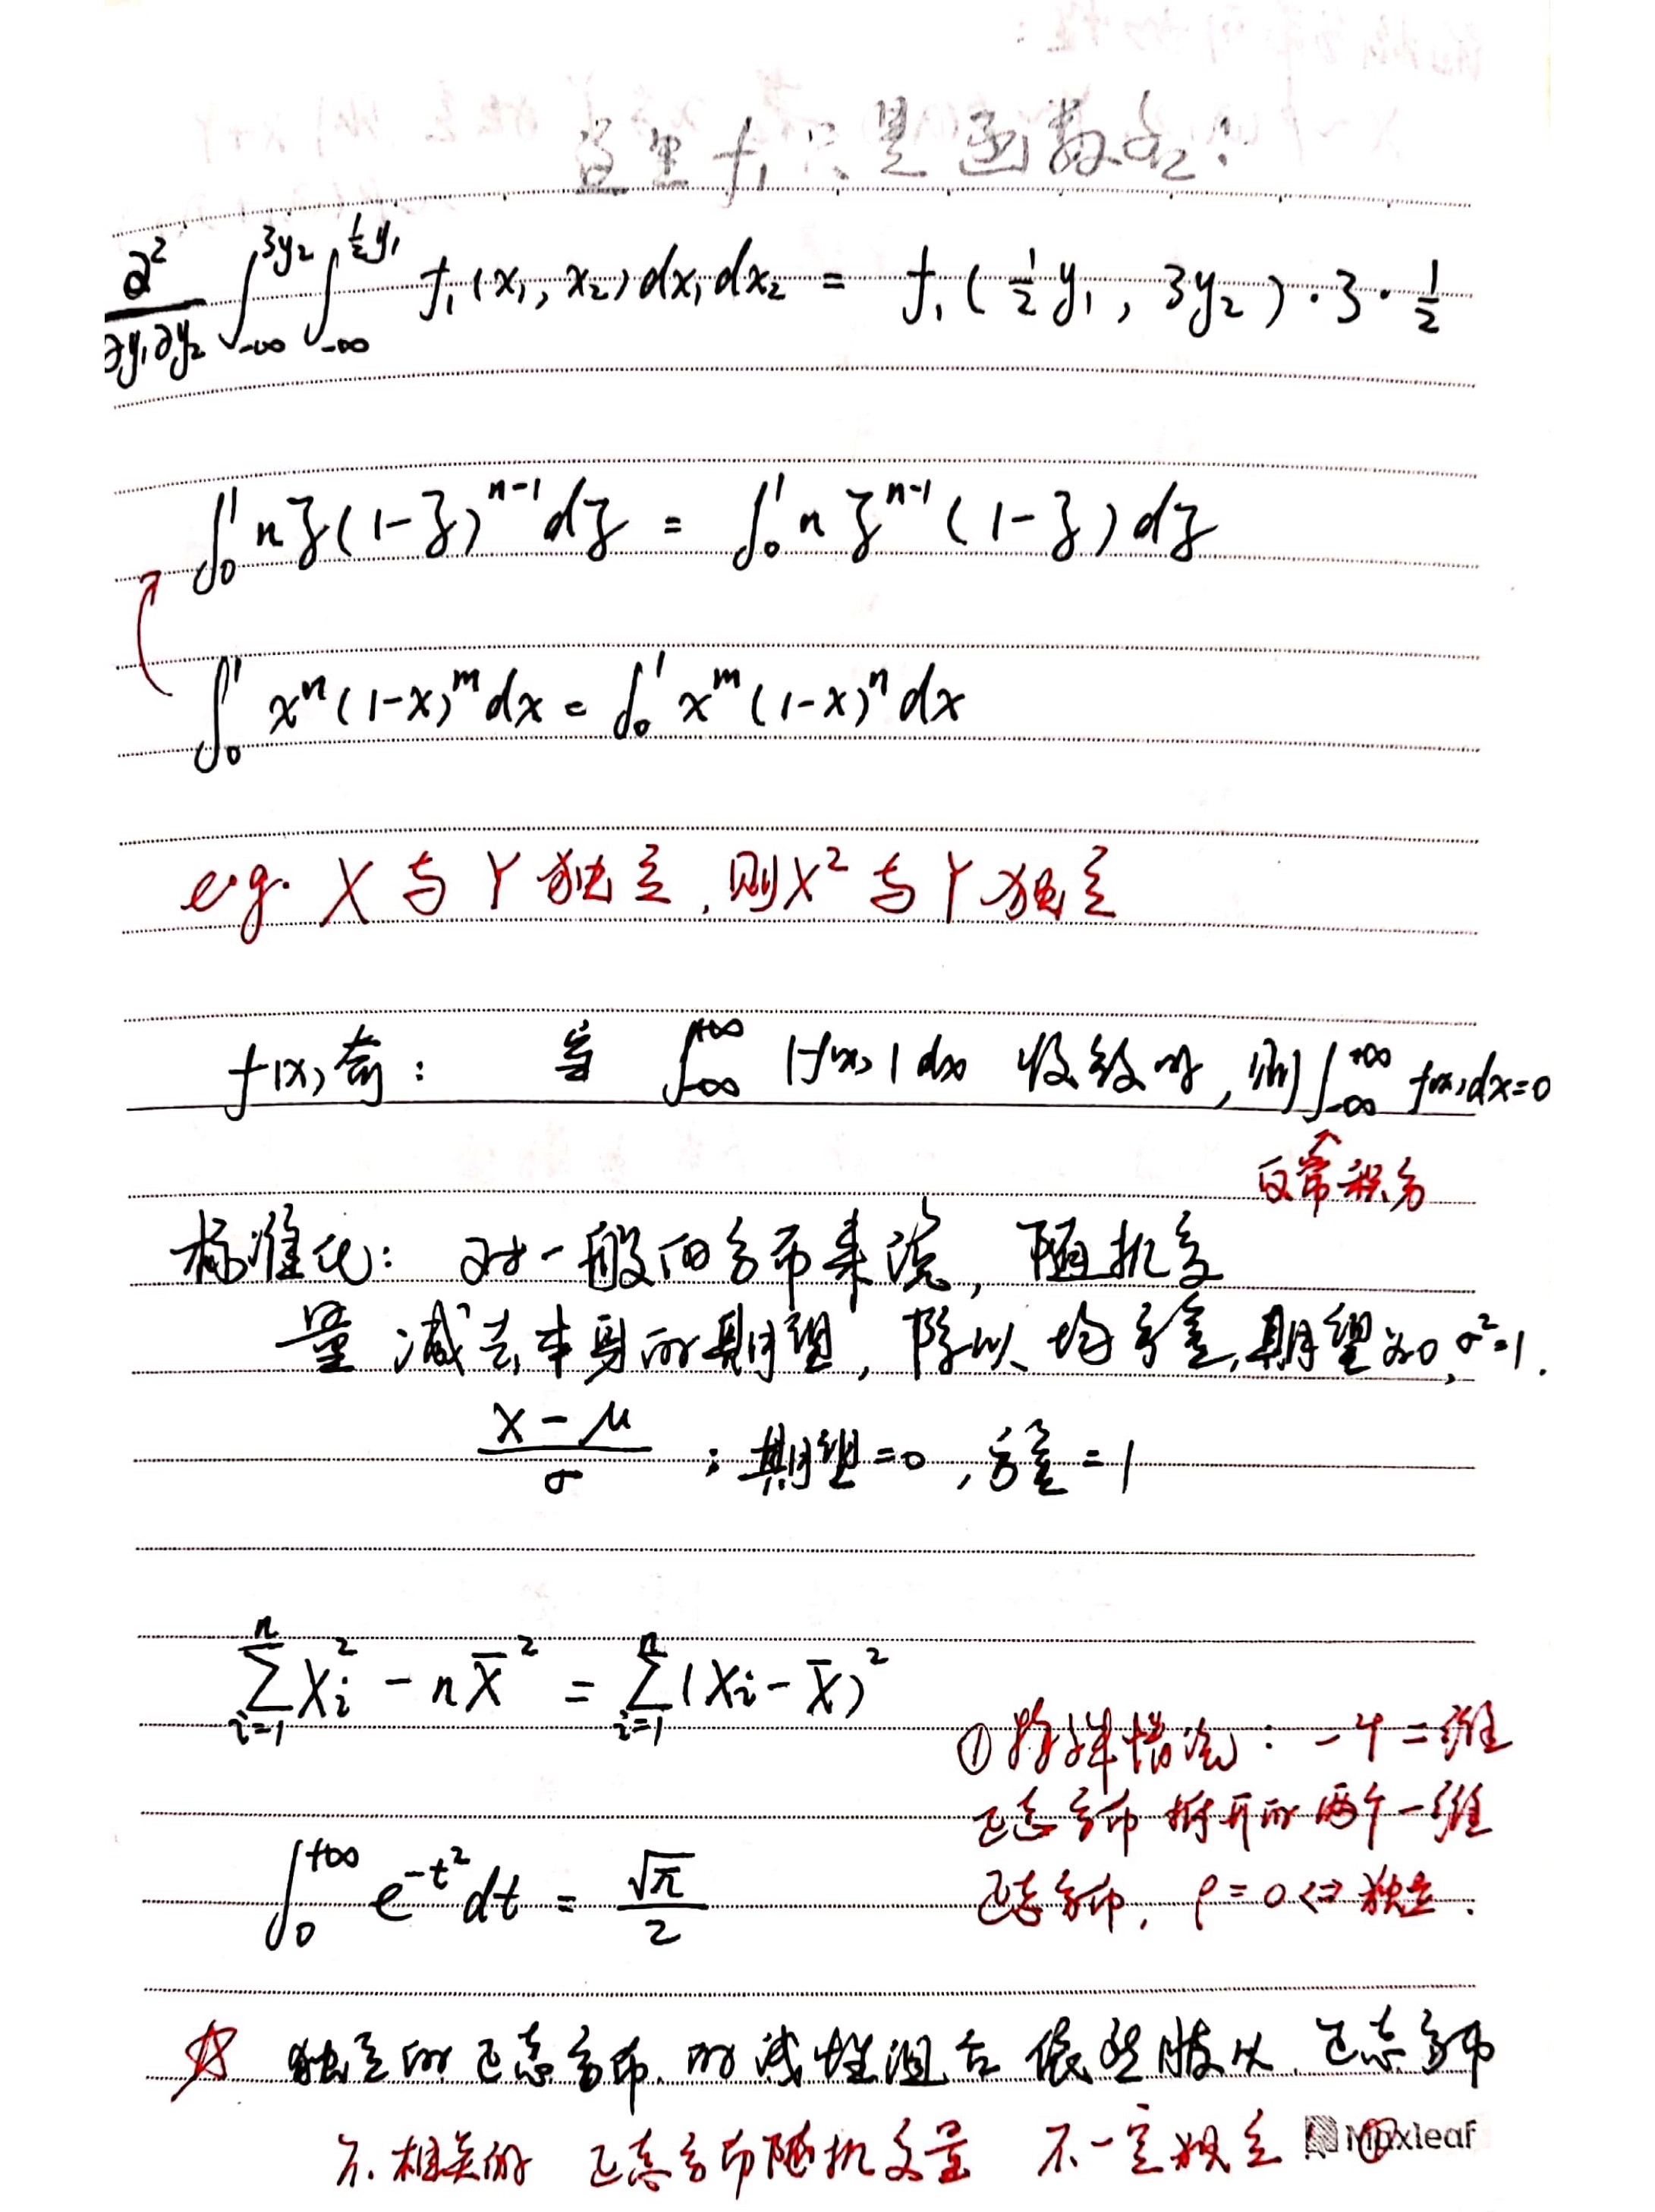 这里 f₁ 只是函数名!
∂²/∂y₁∂y₂ ∫_{-∞}^{3y₂} ∫_{-∞}^{½y₁} f₁(x₁, x₂) dx₁ dx₂ = f₁(½y₁, 3y₂)·3·½
∫₀¹ n z(1-z)^{n-1} dz = ∫₀¹ n z^{n-1}(1-z) dz
∫₀¹ xⁿ(1-x)^m dx = ∫₀¹ x^m(1-x)ⁿ dx
e.g. X 与 Y 独立, 则 X² 与 Y 独立
f(x)奇: 当 ∫_{-∞}^{+∞} |f(x)| dx 收敛时, 则 ∫_{-∞}^{+∞} f(x)dx=0
反常积分
标准化: 对一般的分布来说, 随机变
量减去本身的期望, 除以均方差, 期望为0, σ²=1.
(X-μ)/σ ; 期望=0, 方差=1
∑_{i=1}^{n} X_i² - n X̄² = ∑_{i=1}^{n} (X_i - X̄)²
①特殊情况: 一个二维
正态分布拆开的两个一维
正态分布, ρ=0 <=> 独立.
∫₀^{+∞} e^{-t²} dt = √π/2
☆ 独立的正态分布的线性组合依然服从正态分布
不相关的 正态分布随机变量 不一定独立 ①
Maxleaf